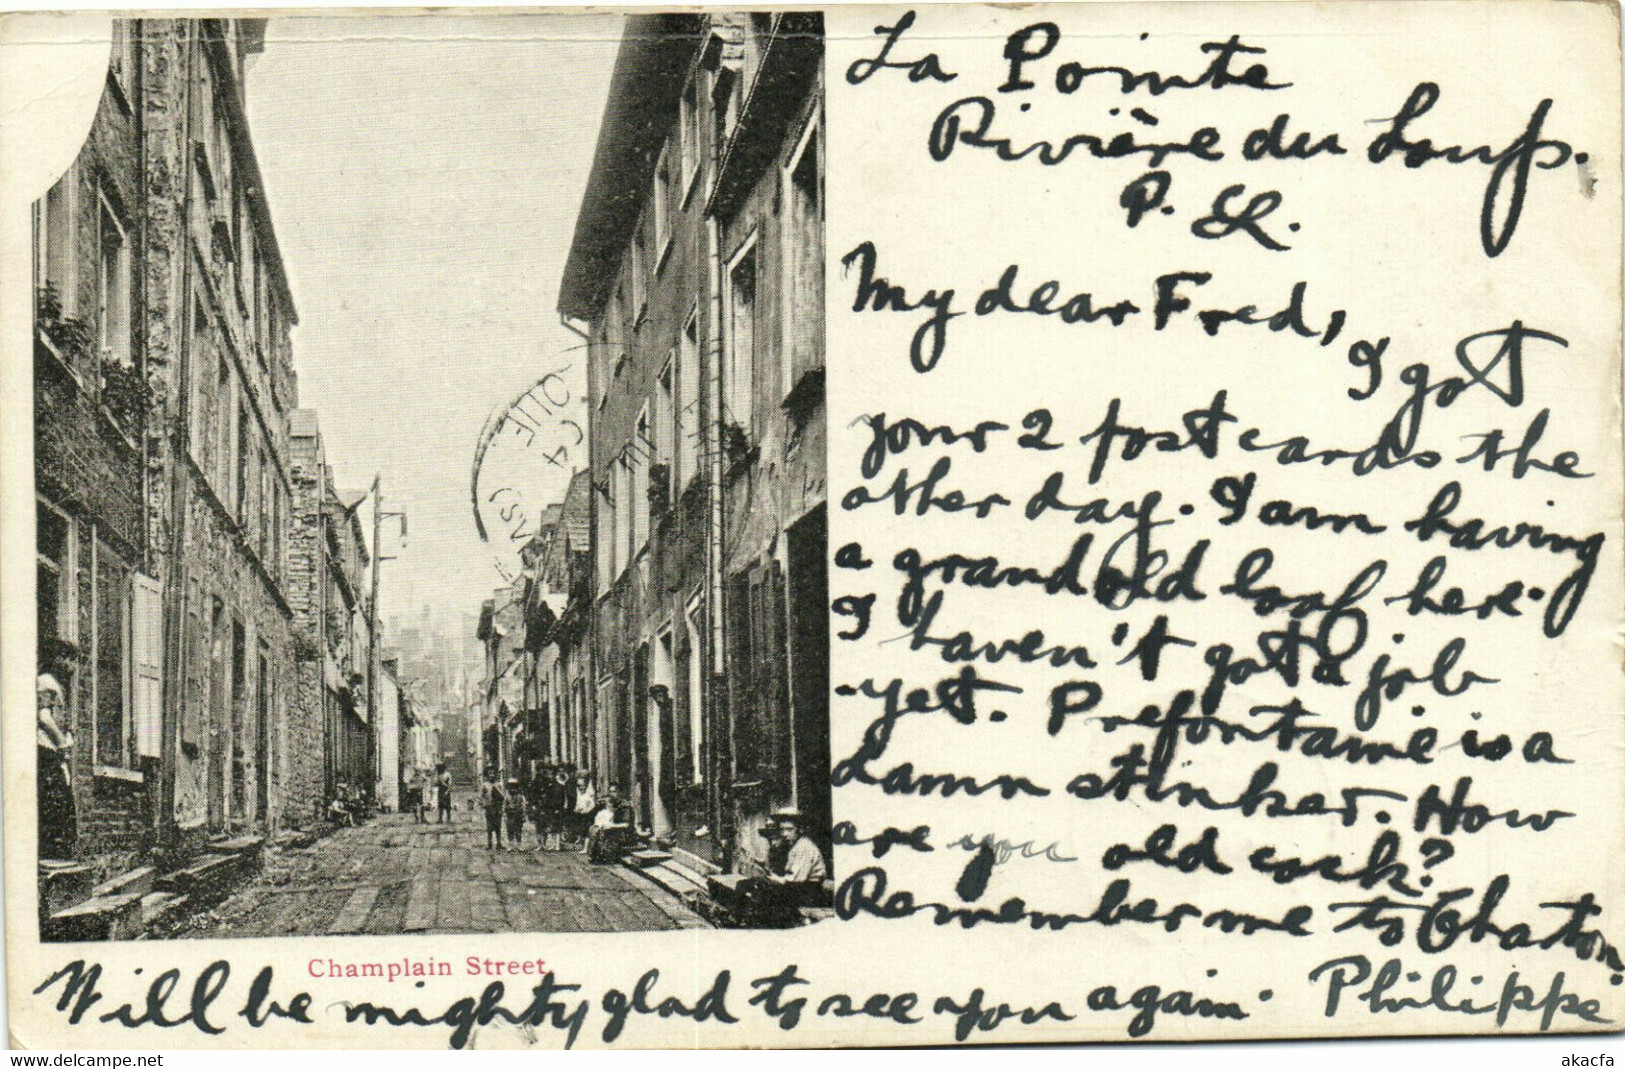 La Pointe
Rivière du Loup.
P. Q.
My dear Fred, I got
your 2 post cards the
other day. I am having
a grand old loaf here.
I haven't got a job
yet. Prefontaine is a
damn stinker. How
are you old cock?
Remember me to Chatton.
Will be mighty glad to see you again. Philippe
Champlain Street.
www.delcampe.net
akacfa